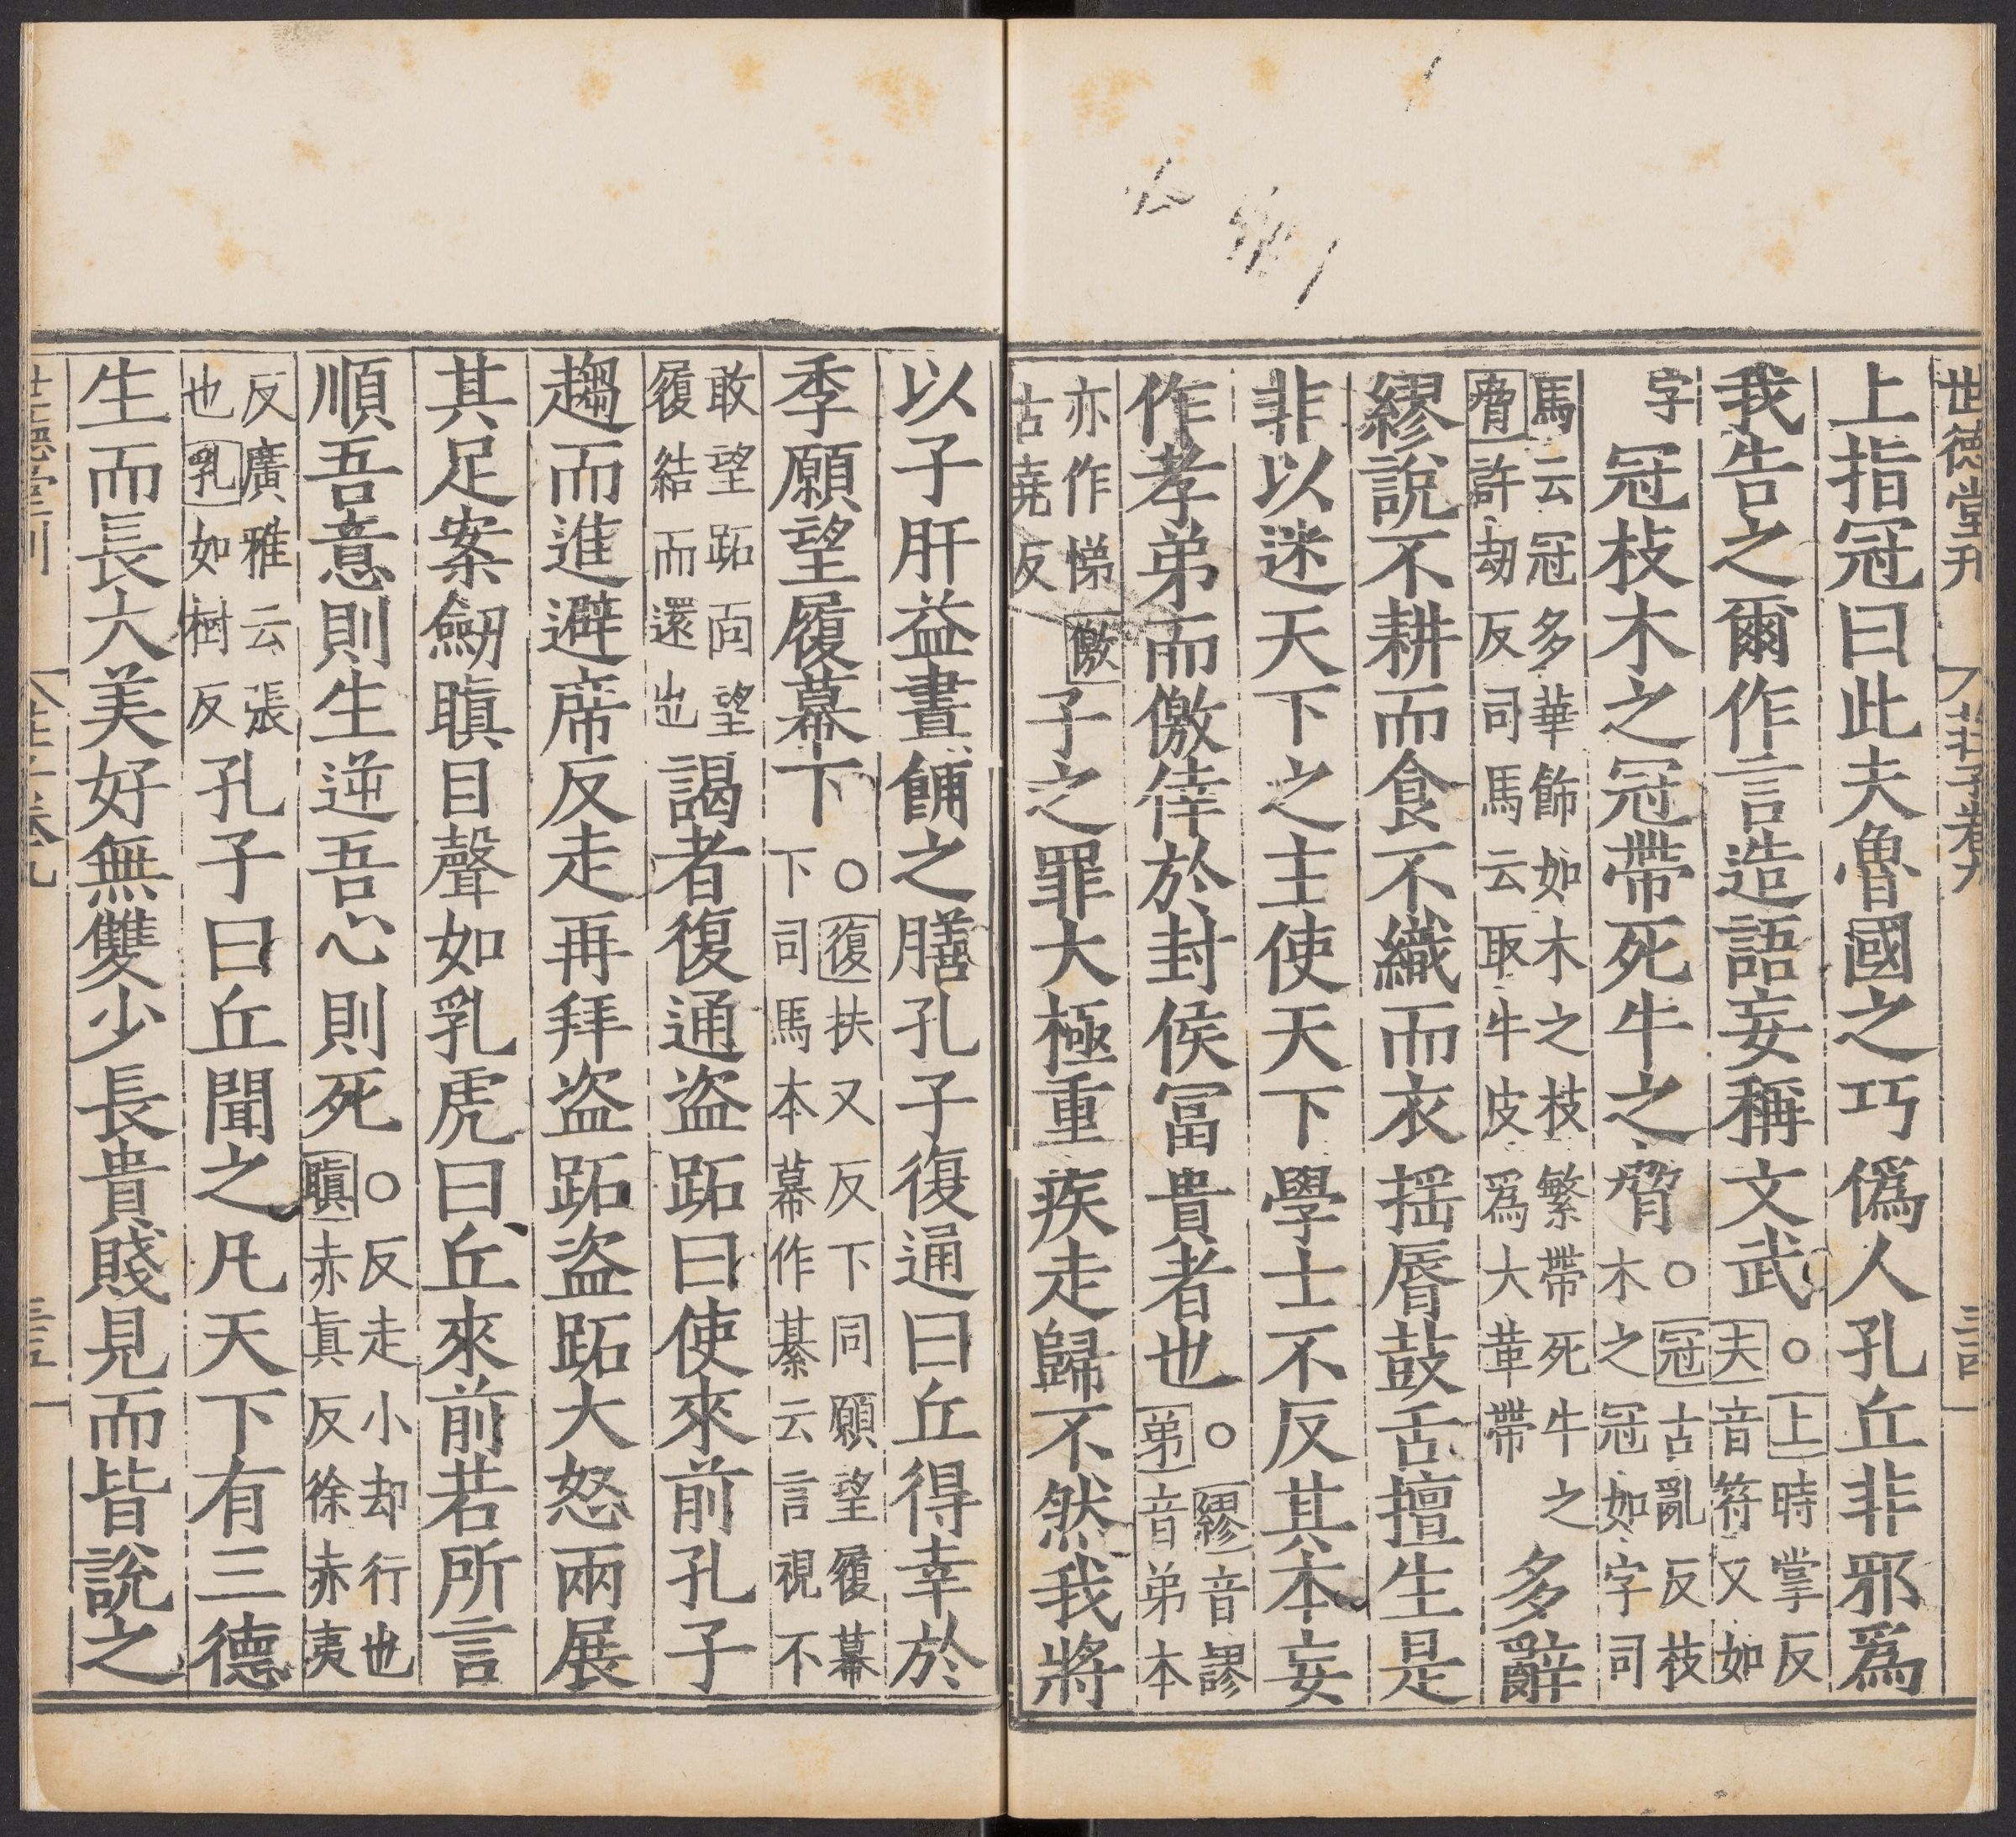 世德堂刊 莊子卷九
上指冠曰此夫魯國之巧僞人孔丘非邪爲
我告之爾作言造語妄稱文武○上時掌反夫音符又如
字冠枝木之冠帶死牛之脅○冠古亂反枝木之冠如字司
馬云冠多華飾如木之枝繁帶死牛之脅許劫反司馬云取牛皮爲大革帶多辭
繆說不耕而食不織而衣揺脣鼓舌擅生是
非以迷天下之主使天下學士不反其本妄
作孝弟而儌倖於封侯冨貴者也○繆音謬弟音弟本
亦作悌儌古堯反子之罪大極重疾走歸不然我將
以子肝益晝餔之膳孔子復通曰丘得幸於
季願望履幕下○復扶又反下同願望履幕下司馬本幕作綦云言視不
敢望跖面望履結而還也謁者復通盜跖曰使來前孔子
趨而進避席反走再拜盜跖盜跖大怒兩展
其足案劒瞋目聲如乳虎曰丘來前若所言
順吾意則生逆吾心則死○反走小却行也瞋赤眞反徐赤夷
反廣雅云張也乳如樹反孔子曰丘聞之凡天下有三德
生而長大美好無雙少長貴賤見而皆說之